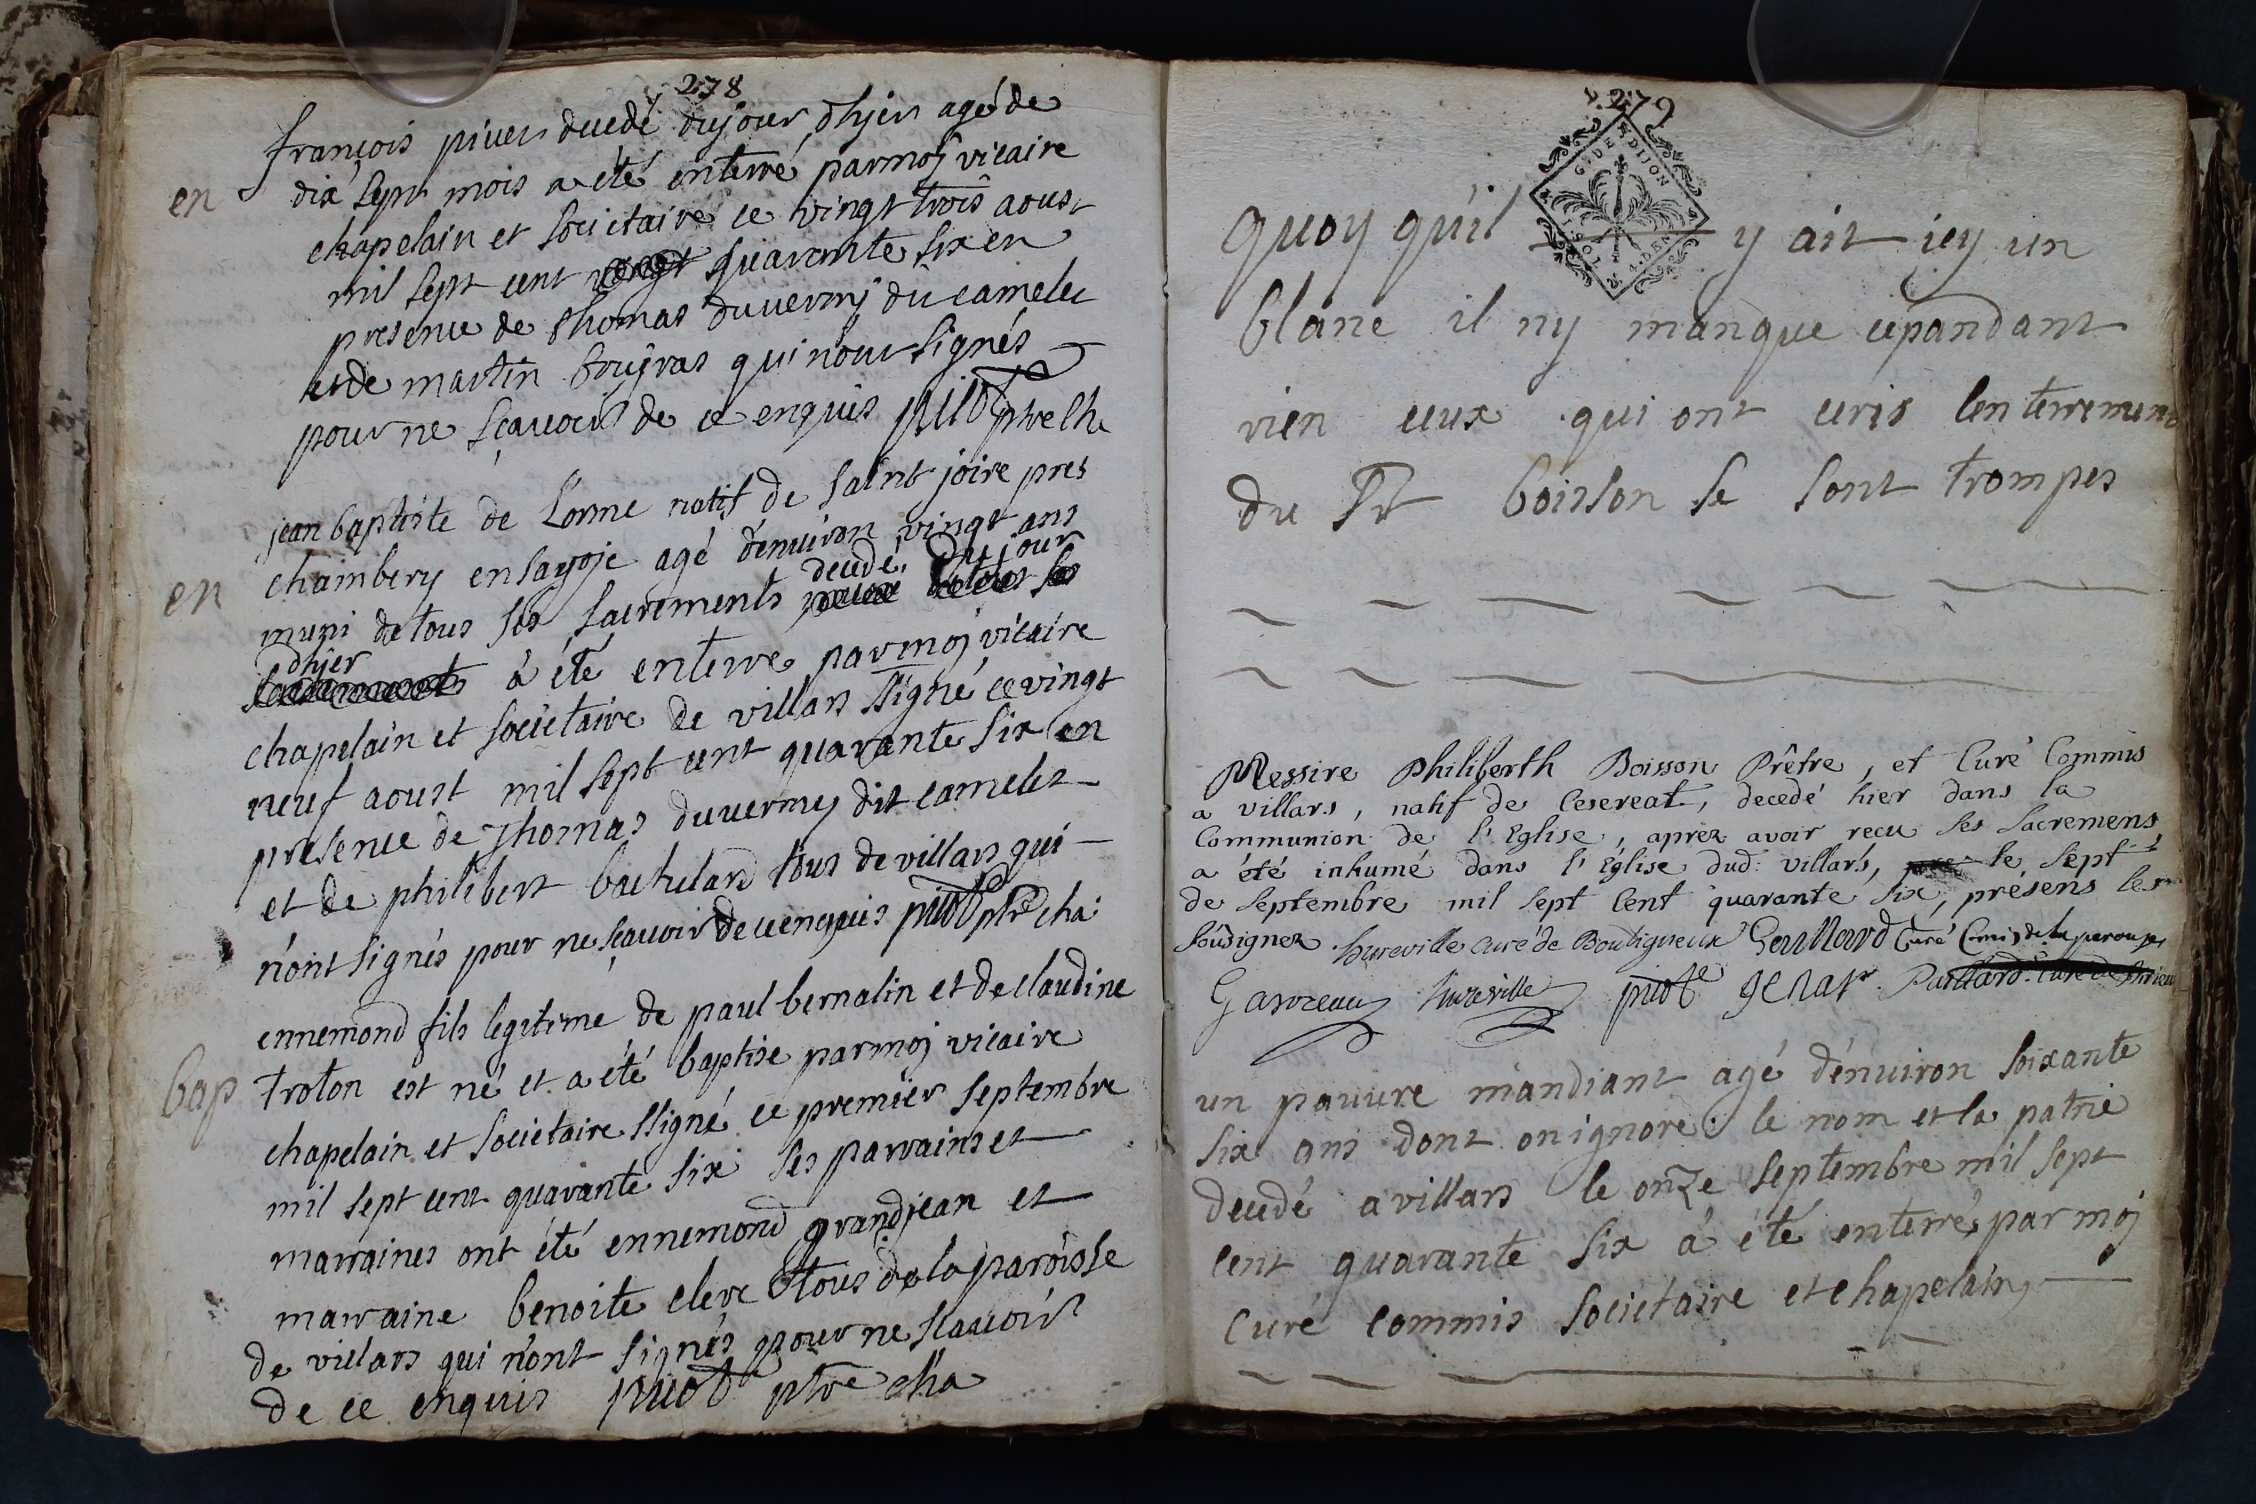 278
françois piver decedé du jour d'hjer agé de
en
dix sept mois a été enterré par moj vicaire
chapelain et societaire ce vingt trois aoust
mil sept cent quarante six en
presence de thomas duverny dit camelet
et de martin qui n'ont signés
pour ne sçavoir de ce enquis pitiot ptre cha
jean baptiste de Lorme natif de saint joire pres
chambery en savoje agé d'environ vingt ans
decedé du jour
en
muni de tous ses sacrements
d'hjer
à été enterre par moj vicaire
chapelain et societaire de villars ssigné ce vingt
neuf aoust mil sept cent quarante six en
presence de Thomas duverney dit camelet
et de philibert bachelard tous de villars qui
n'ont signés pour ne sçavoir de ce enquis pitiot ptre cha
ennemond fils legitime de paul bernalin et de claudine
bap
troton est né et a été baptise par moj vicaire
chapelain et societaire ssigné ce premier septembre
mil sept cent quarante six ses parrains et
marraines ont été ennemond grandjean et
marraine benoite clere tous de la paroisse
de villars qui n'ont signés pour ne scavoir
de ce enquis pitiot ptre cha
279
G. DE DIJON
quoy qu'il y ait icy un
blanc il ny manque cepandant
rien ceux qui ont cris l'enterrement
du Sr boisson se sont trompes
Messire Philiberth Boisson Prêtre, et Curé Commis
a villars, natif de Cesereat, decedé hier dans la
Communion de l'Eglise, aprez avoir recu ses sacremens
a été inhumé dans l'Église dud: villars, le sept
de septembre mil sept cent quarante six, présens les
soûsignez. hureville curé de Bouligneux Curé Comis de la perouse
hureville pitiot genar
un pauvre mandiant agé d'environ soixante
six ans dont on ignore le nom et la patrie
decedé a villars le onze septembre mil sept
cent quarante six a été enterré par moj
curé commis societaire et chapelain